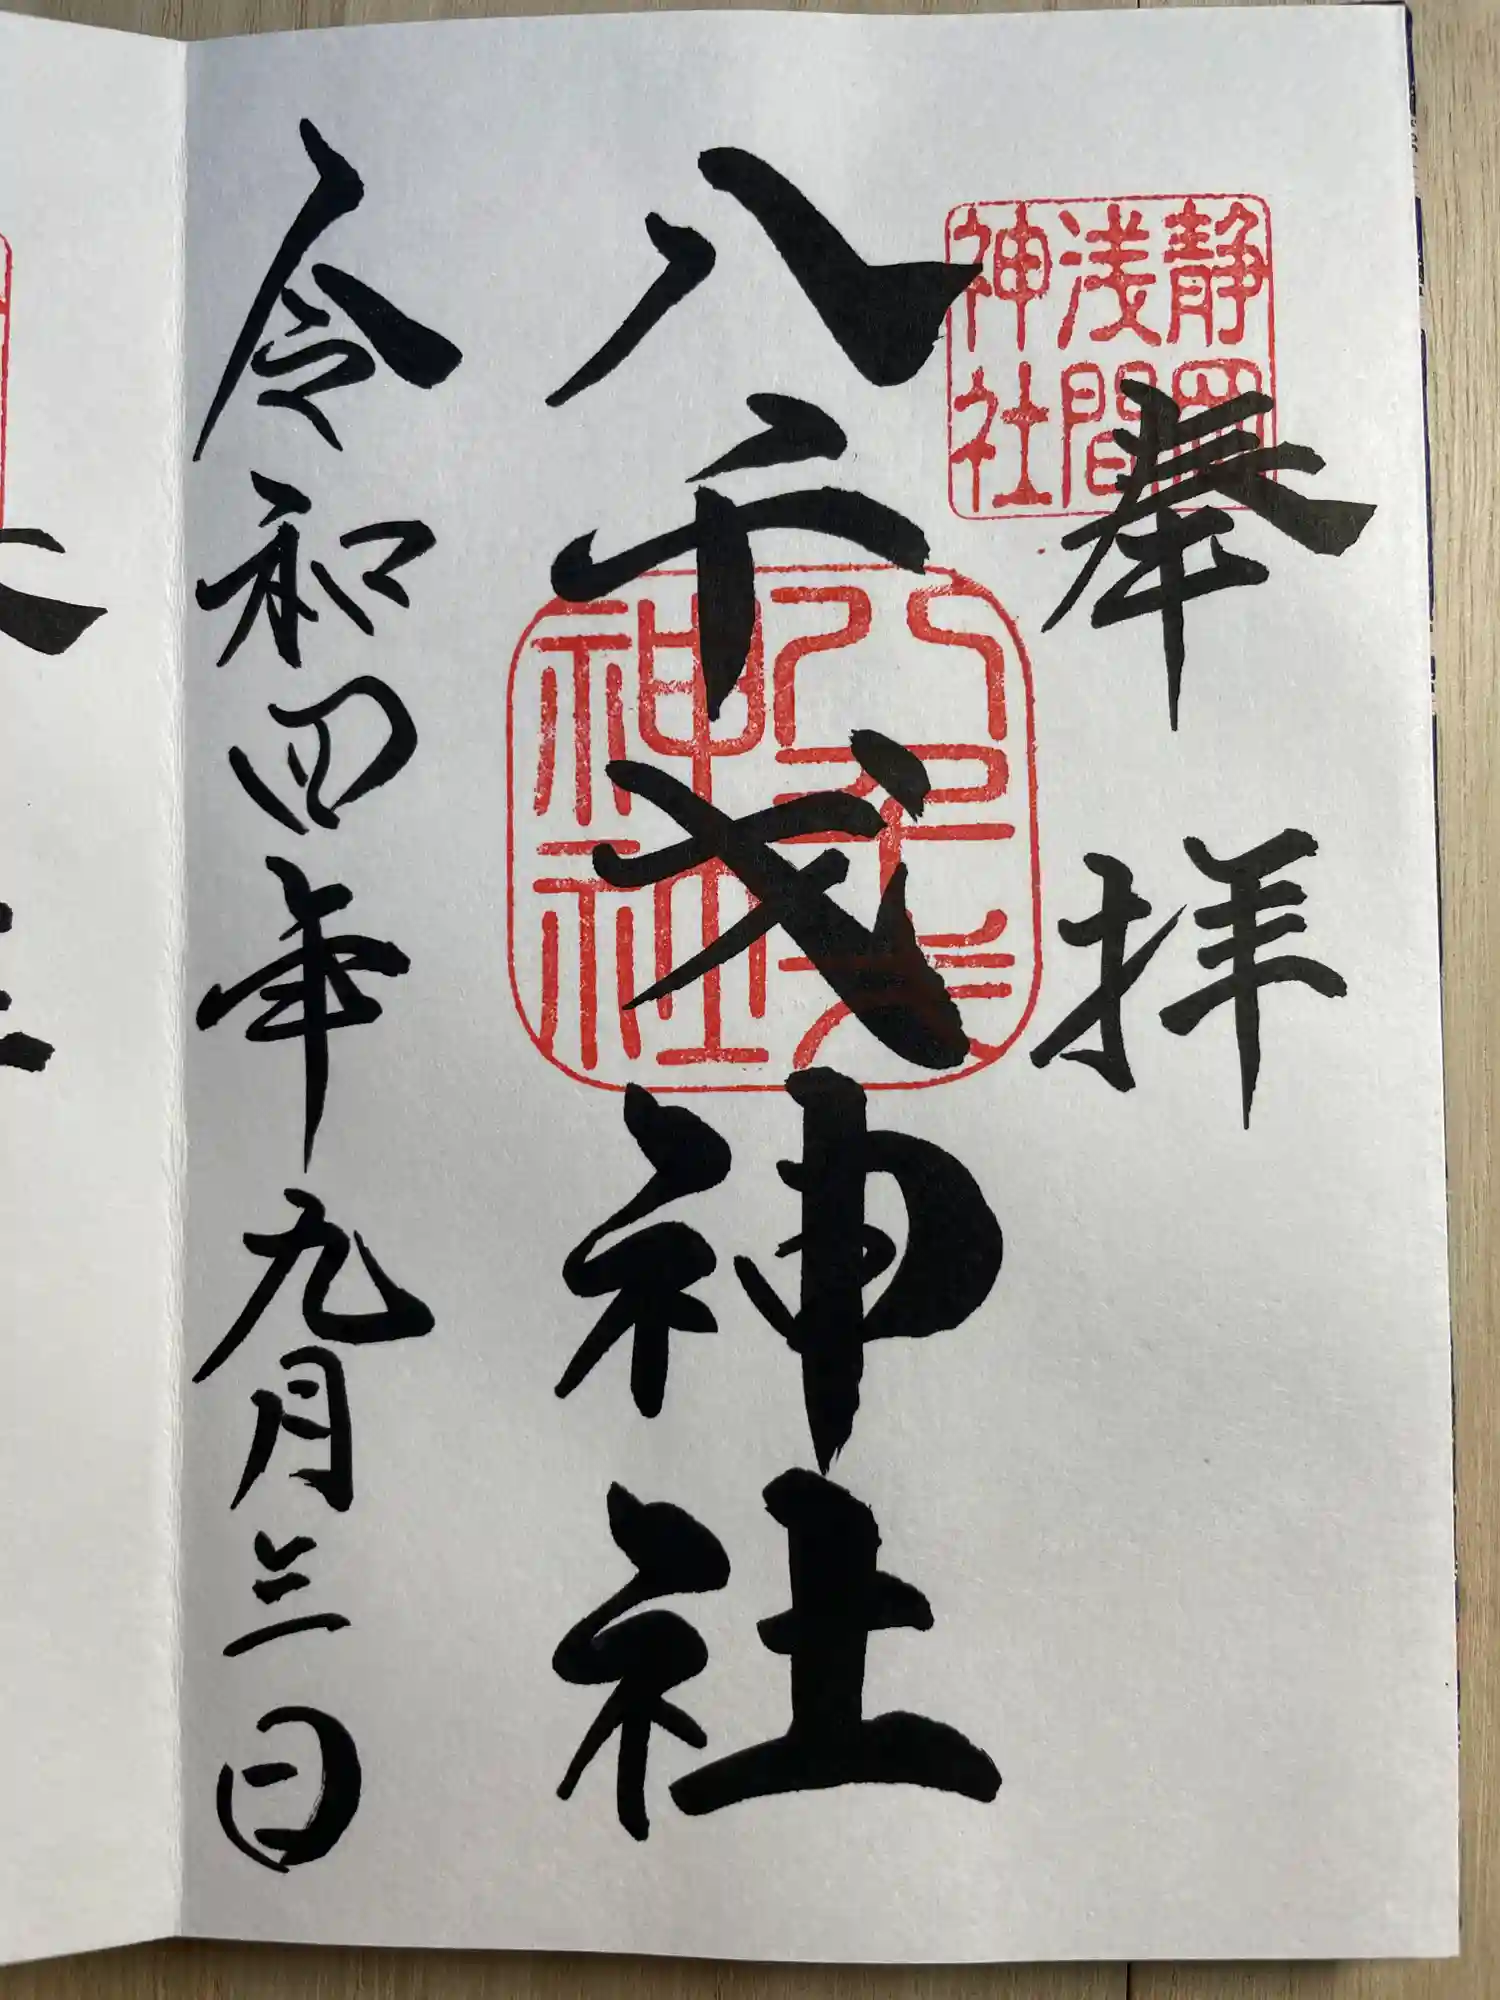 静岡
浅間
神社
奉拝
八千戈神社
八千戈
神社
令和四年九月三日